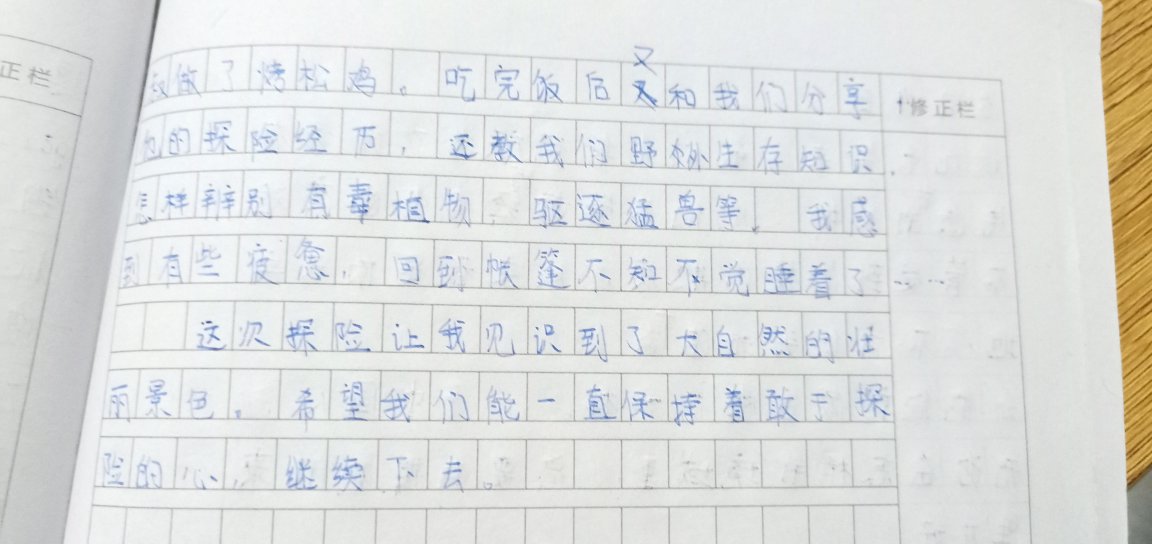 正栏
做了烤松鸡。吃完饭后又和我们分享
修正栏
的探险经历，还教我们野外生存知识，
怎样辨别有毒植物、驱逐猛兽等。我感
到有些疲惫，回到帐篷不知不觉睡着了……
这次探险让我见识到了大自然的壮
丽景色，希望我们能一直保持着敢于探
险的心，继续下去。